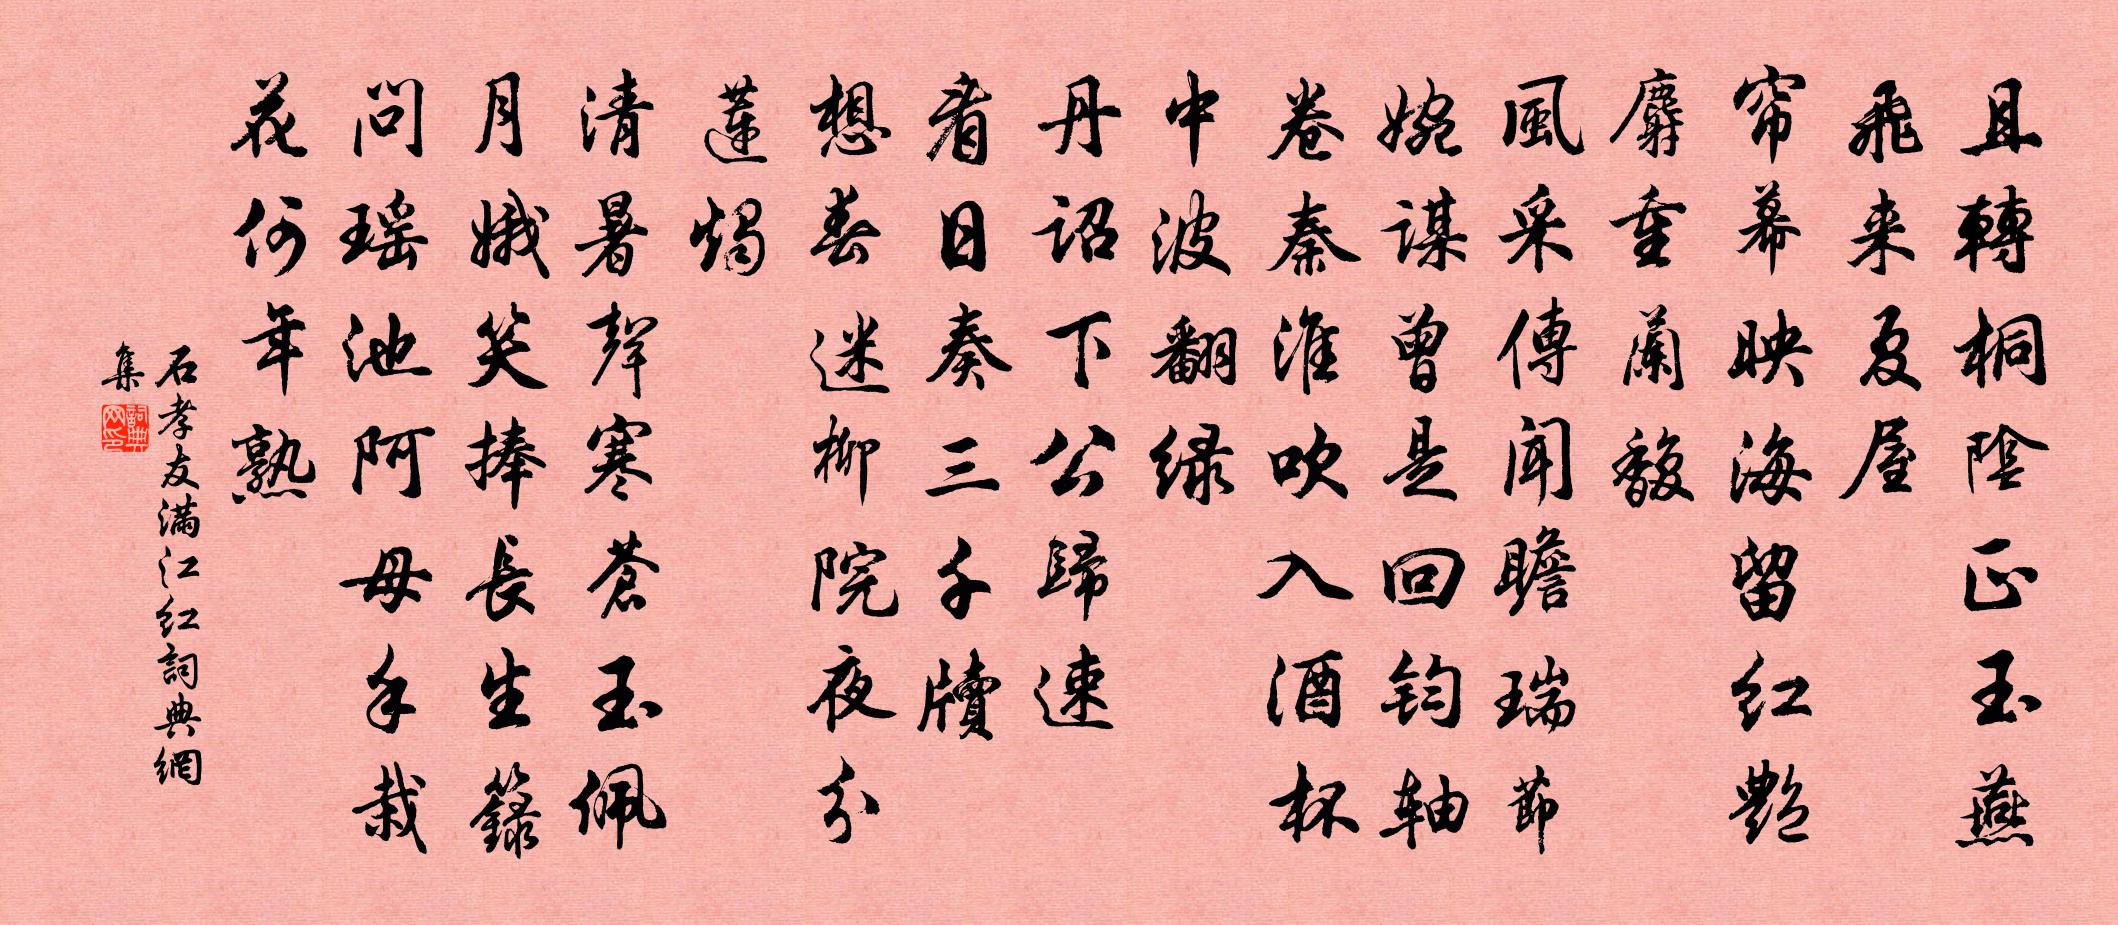 且轉桐陰正玉燕
飛来夏屋
帘幕映海留红艷
麝重蘭馥
風采傳聞瞻瑞節
婉謀曾是回钧轴
卷秦淮吹入酒杯
中波翻绿
丹詔下公歸速
看日奏三千牘
想春迷柳院夜分
蓮燭
清暑聲寒蒼玉佩
月娥笑捧長生籙
問瑶池阿母手栽
花何年熟
石孝友满江红詞典網
集
詞典
网印